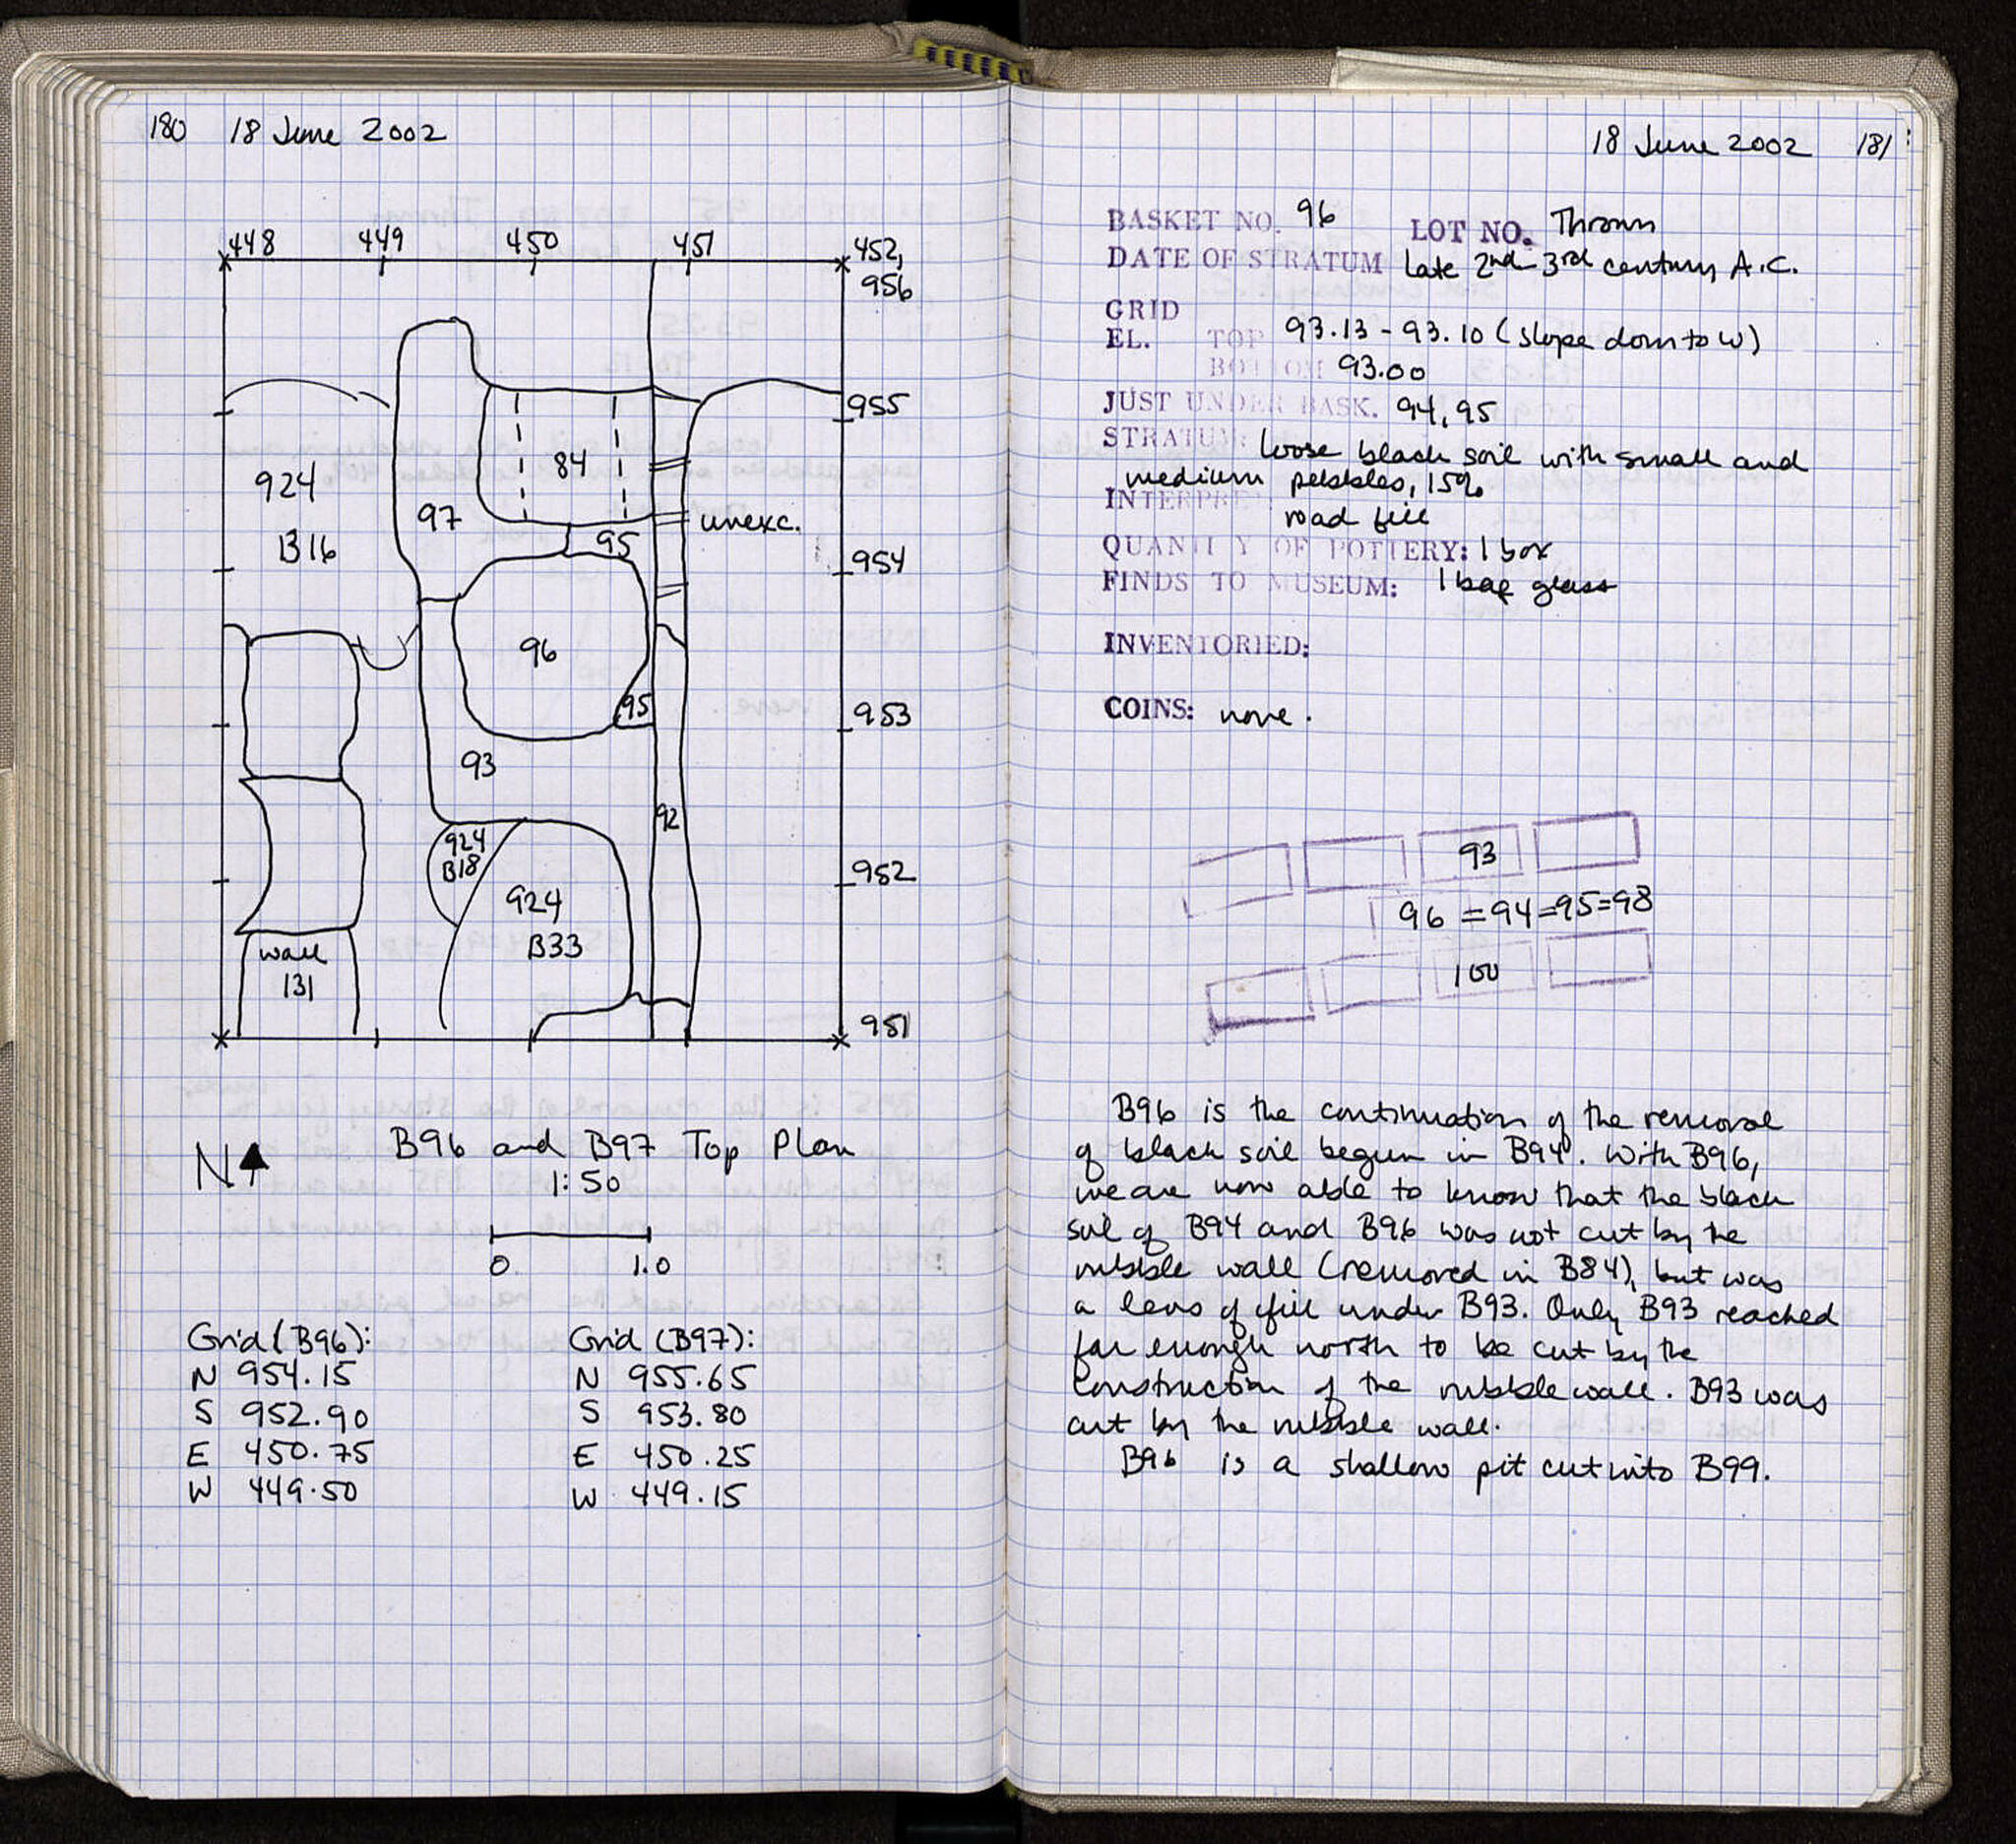 180 18 June 2002
448 449 450 451 452,
956
955
84
924
97
unexc.
95
B16
954
96
95
953
93
92
924
B18
952
924
B33
wall
131
951
N
B96 and B97 Top Plan
1:50
0 1.0
Grid (B96):
N 954.15
S 952.90
E 450.75
W 449.50
Grid (B97):
N 955.65
S 953.80
E 450.25
W 449.15
18 June 2002 181
BASKET NO. 96 LOT NO. Thrown
DATE OF STRATUM late 2nd-3rd century A.C.
GRID
EL. TOP 93.13 - 93.10 (slope down to W)
BOTTOM 93.00
JUST UNDER BASK. 94, 95
STRATUM: loose black soil with small and
medium pebbles, 15%
INTERPRE
road fill
QUANTITY OF POTTERY: 1 box
FINDS TO MUSEUM: 1 bag glass
INVENTORIED:
COINS: none.
93
96 = 94 = 95 = 98
100
B96 is the continuation of the removal
of black soil begun in B94. With B96,
we are now able to know that the black
soil of B94 and B96 was not cut by the
rubble wall (removed in B84), but was
a lens of fill under B93. Only B93 reached
far enough north to be cut by the
construction of the rubble wall. B93 was
cut by the rubble wall.
B96 is a shallow pit cut into B99.